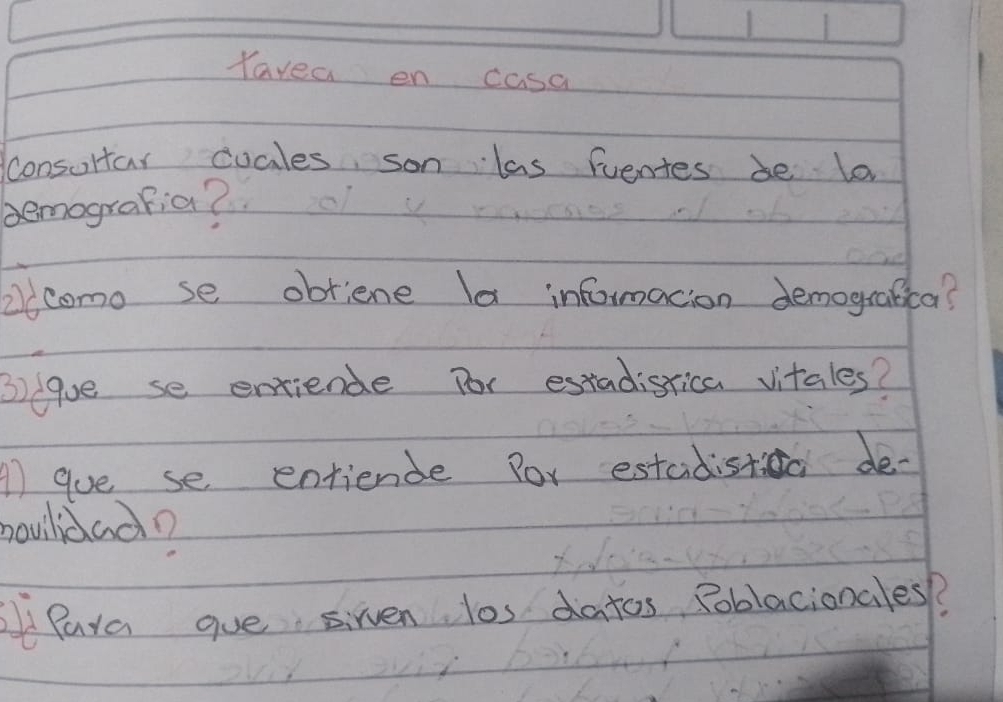 tarea en casa
consultar cuales son las fuentes de la
demografia?
2) ¿como se obtiene la informacion demografica?
3) ¿que se entiende Por estadistica vitales?
4) que se entiende Por estadistica de-
movilidad?
5) ¿Para que sirven los datos Poblacionales?